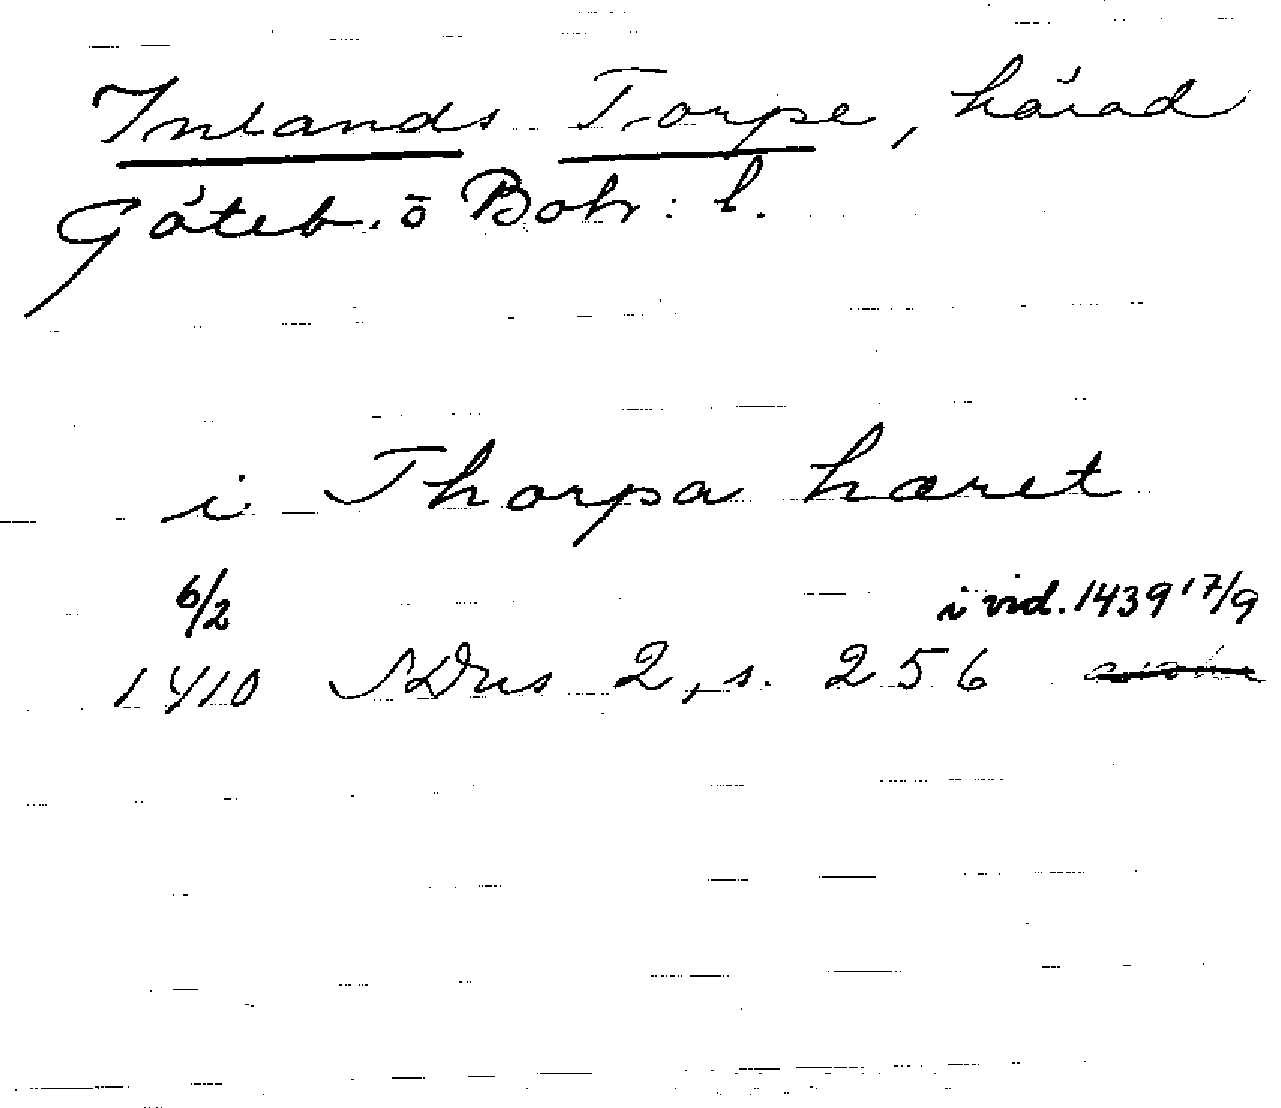 Inlands Torpe, härad
Göteb. o Boh: l.
i Thorpa hæret
6/2 i vid. 1439 17/9
1410 SDns 2, s. 256